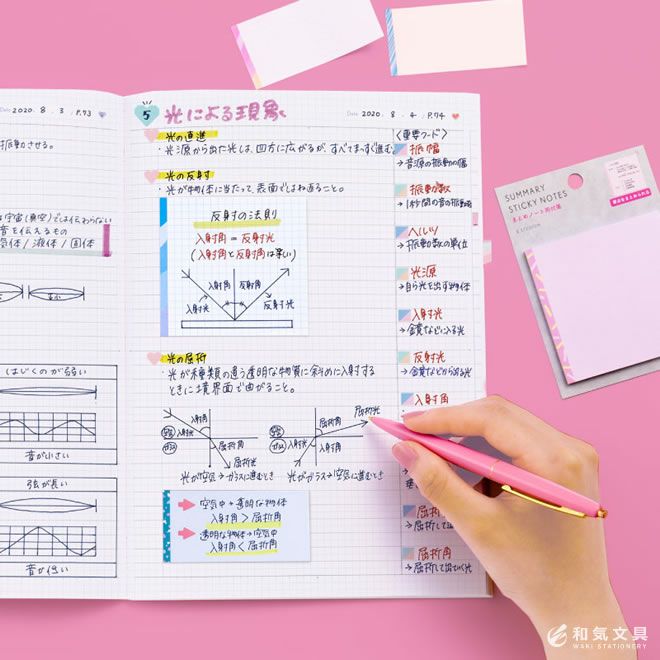 Date 2020 . 8 . 3 . P.73
振動させる。
は宇宙(真空)では伝わらない
音を伝えるもの
気体 / 液体 / 固体
はじくのが弱い
音が小さい
弦が長い
音が低い
5 光による現象
Date 2020 . 8 . 4 . P.74
光の直進
・光源から出た光は、四方に広がるが、すべてまっすぐ進む。
光の反射
・光が物体に当たって、表面ではね返ること。
反射の法則
入射角 = 反射光
(入射角と反射角は等しい)
入射角 反射角
入射光 反射光
光の屈折
・光が種類の違う透明な物質に斜めに入射する
ときに境界面で曲がること。
空気 ガラス 入射光 入射角 屈折角 屈折光
光が空気→ガラスに進むとき
空気 ガラス 入射光 入射角 屈折角 屈折光
光がガラス→空気に進むとき
空気中→透明な物体
入射角 > 屈折角
透明な物体→空気中
入射角 < 屈折角
〈重要ワード〉
振幅
→音源の振動の幅
振動数
→1秒間の音の振動数
ヘルツ
→振動数の単位
光源
→自ら光を出す物体
入射光
→金鏡などに入る光
反射光
入射角
屈折
屈折角
→屈折して出ていく光
SUMMARY
STICKY NOTES
まとめノート用付箋
和気文具
WAKI STATIONERY